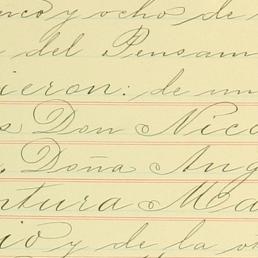 nco y ocho de
del Pensam
ieron: de un
s Don Nico
Doña Ang
ntura Ma
io y de la ot